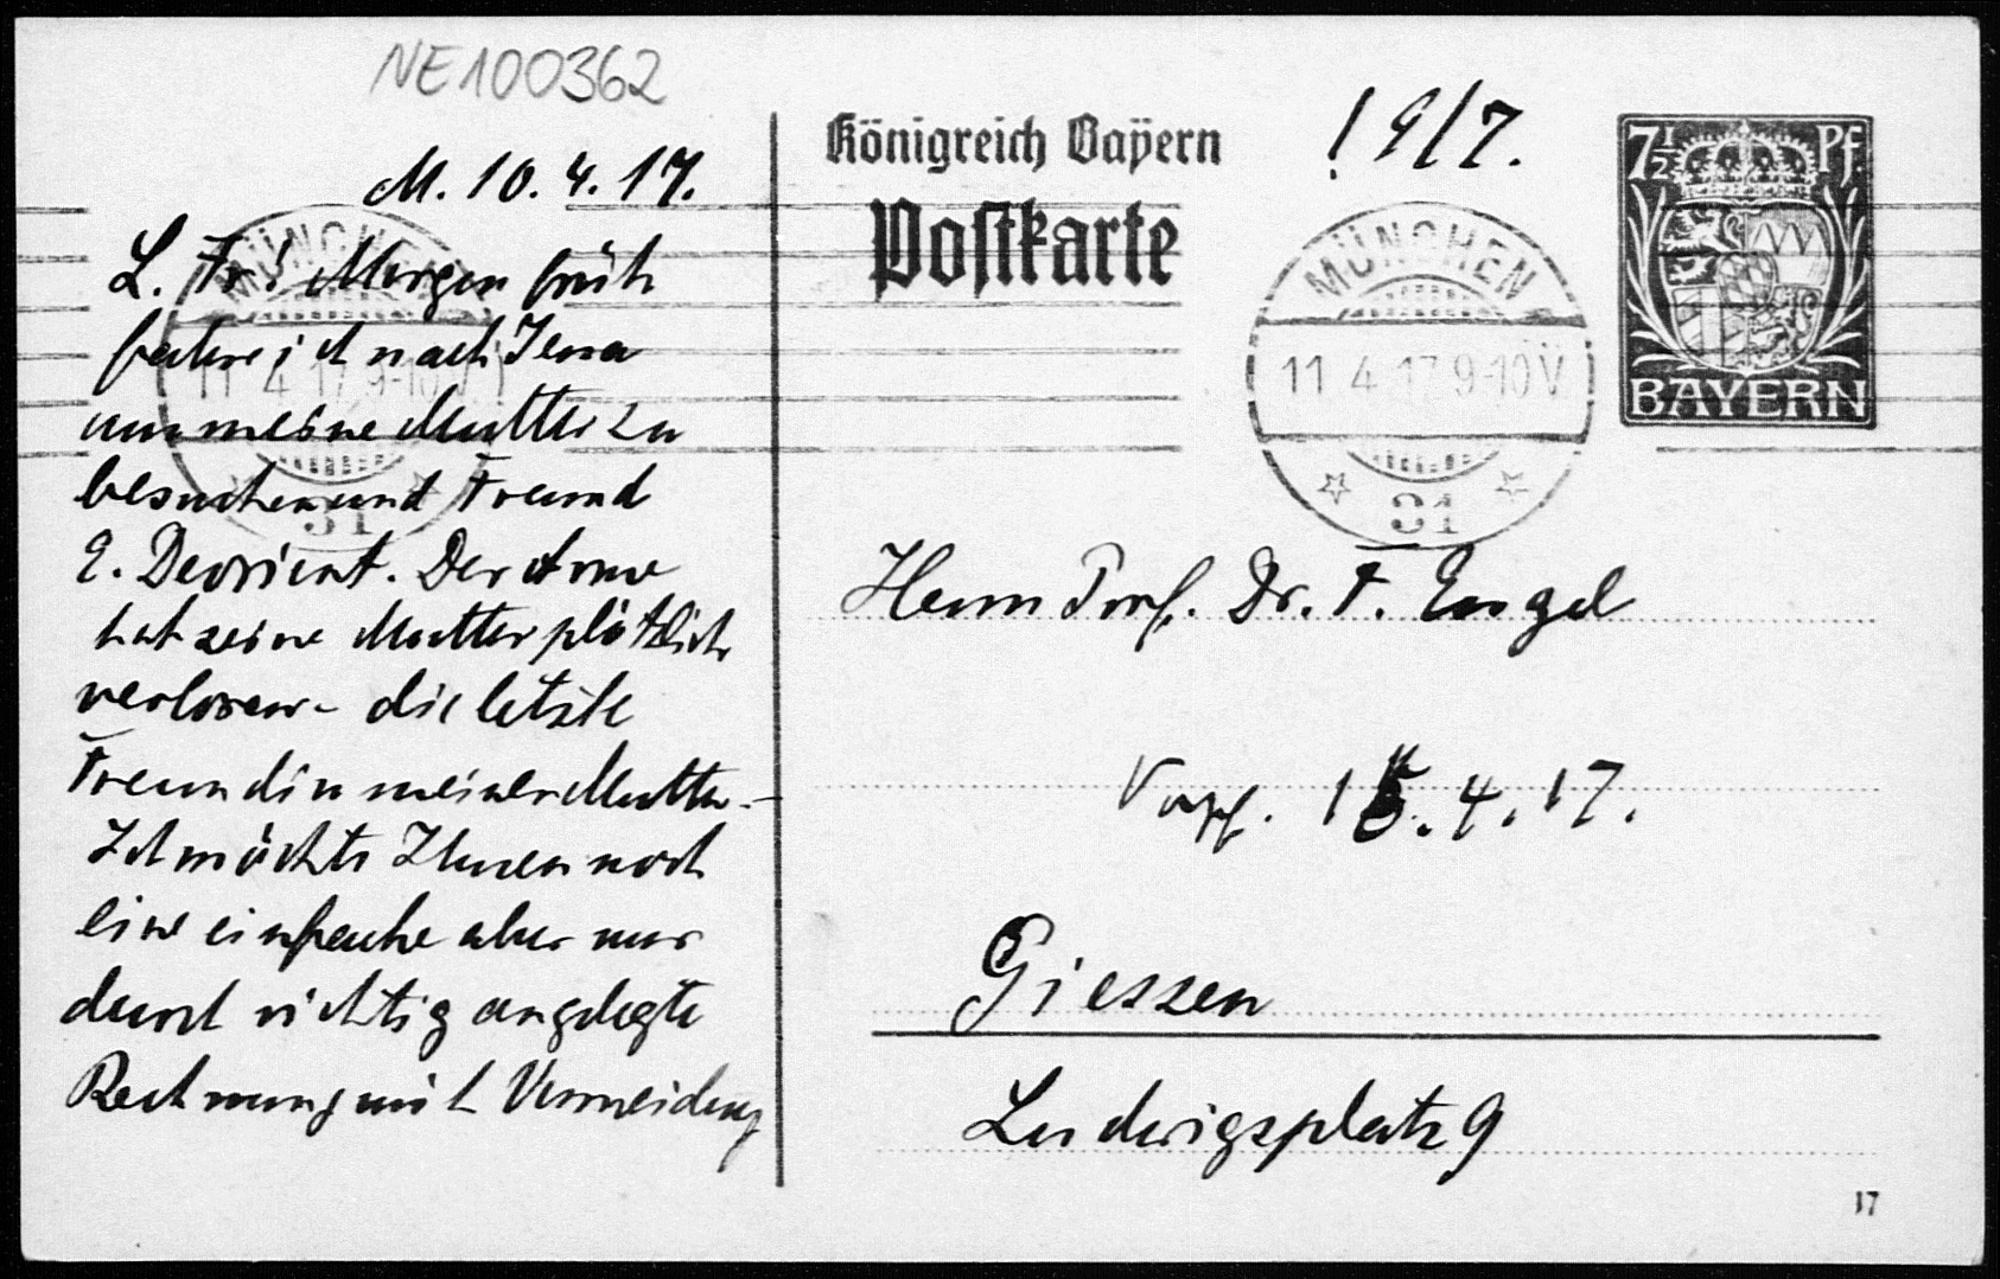 NE100362
M. 10.4.17.
L. Fr! Morgen früh
fahre ich nach Jena
um meine Mutter zu
besuchen und Freund
E. Devrient. Der Arme
hat seine Mutter plötzlich
verloren - die letzte
Freundin meiner Mutter. -
Ich möchte Ihnen noch
eine einfache aber nur
durch richtig angelegte
Rechnung mit Vermeidung
Königreich Bayern
!9/7.
Postkarte
7½ Pf.
BAYERN
MÜNCHEN
11 4 17 9-10V
31
MÜNCHEN
11 4 17 9-10V
31
Herrn Prof. Dr. F. Engel
4.17.
Giessen
Ludwigsplatz 9
17